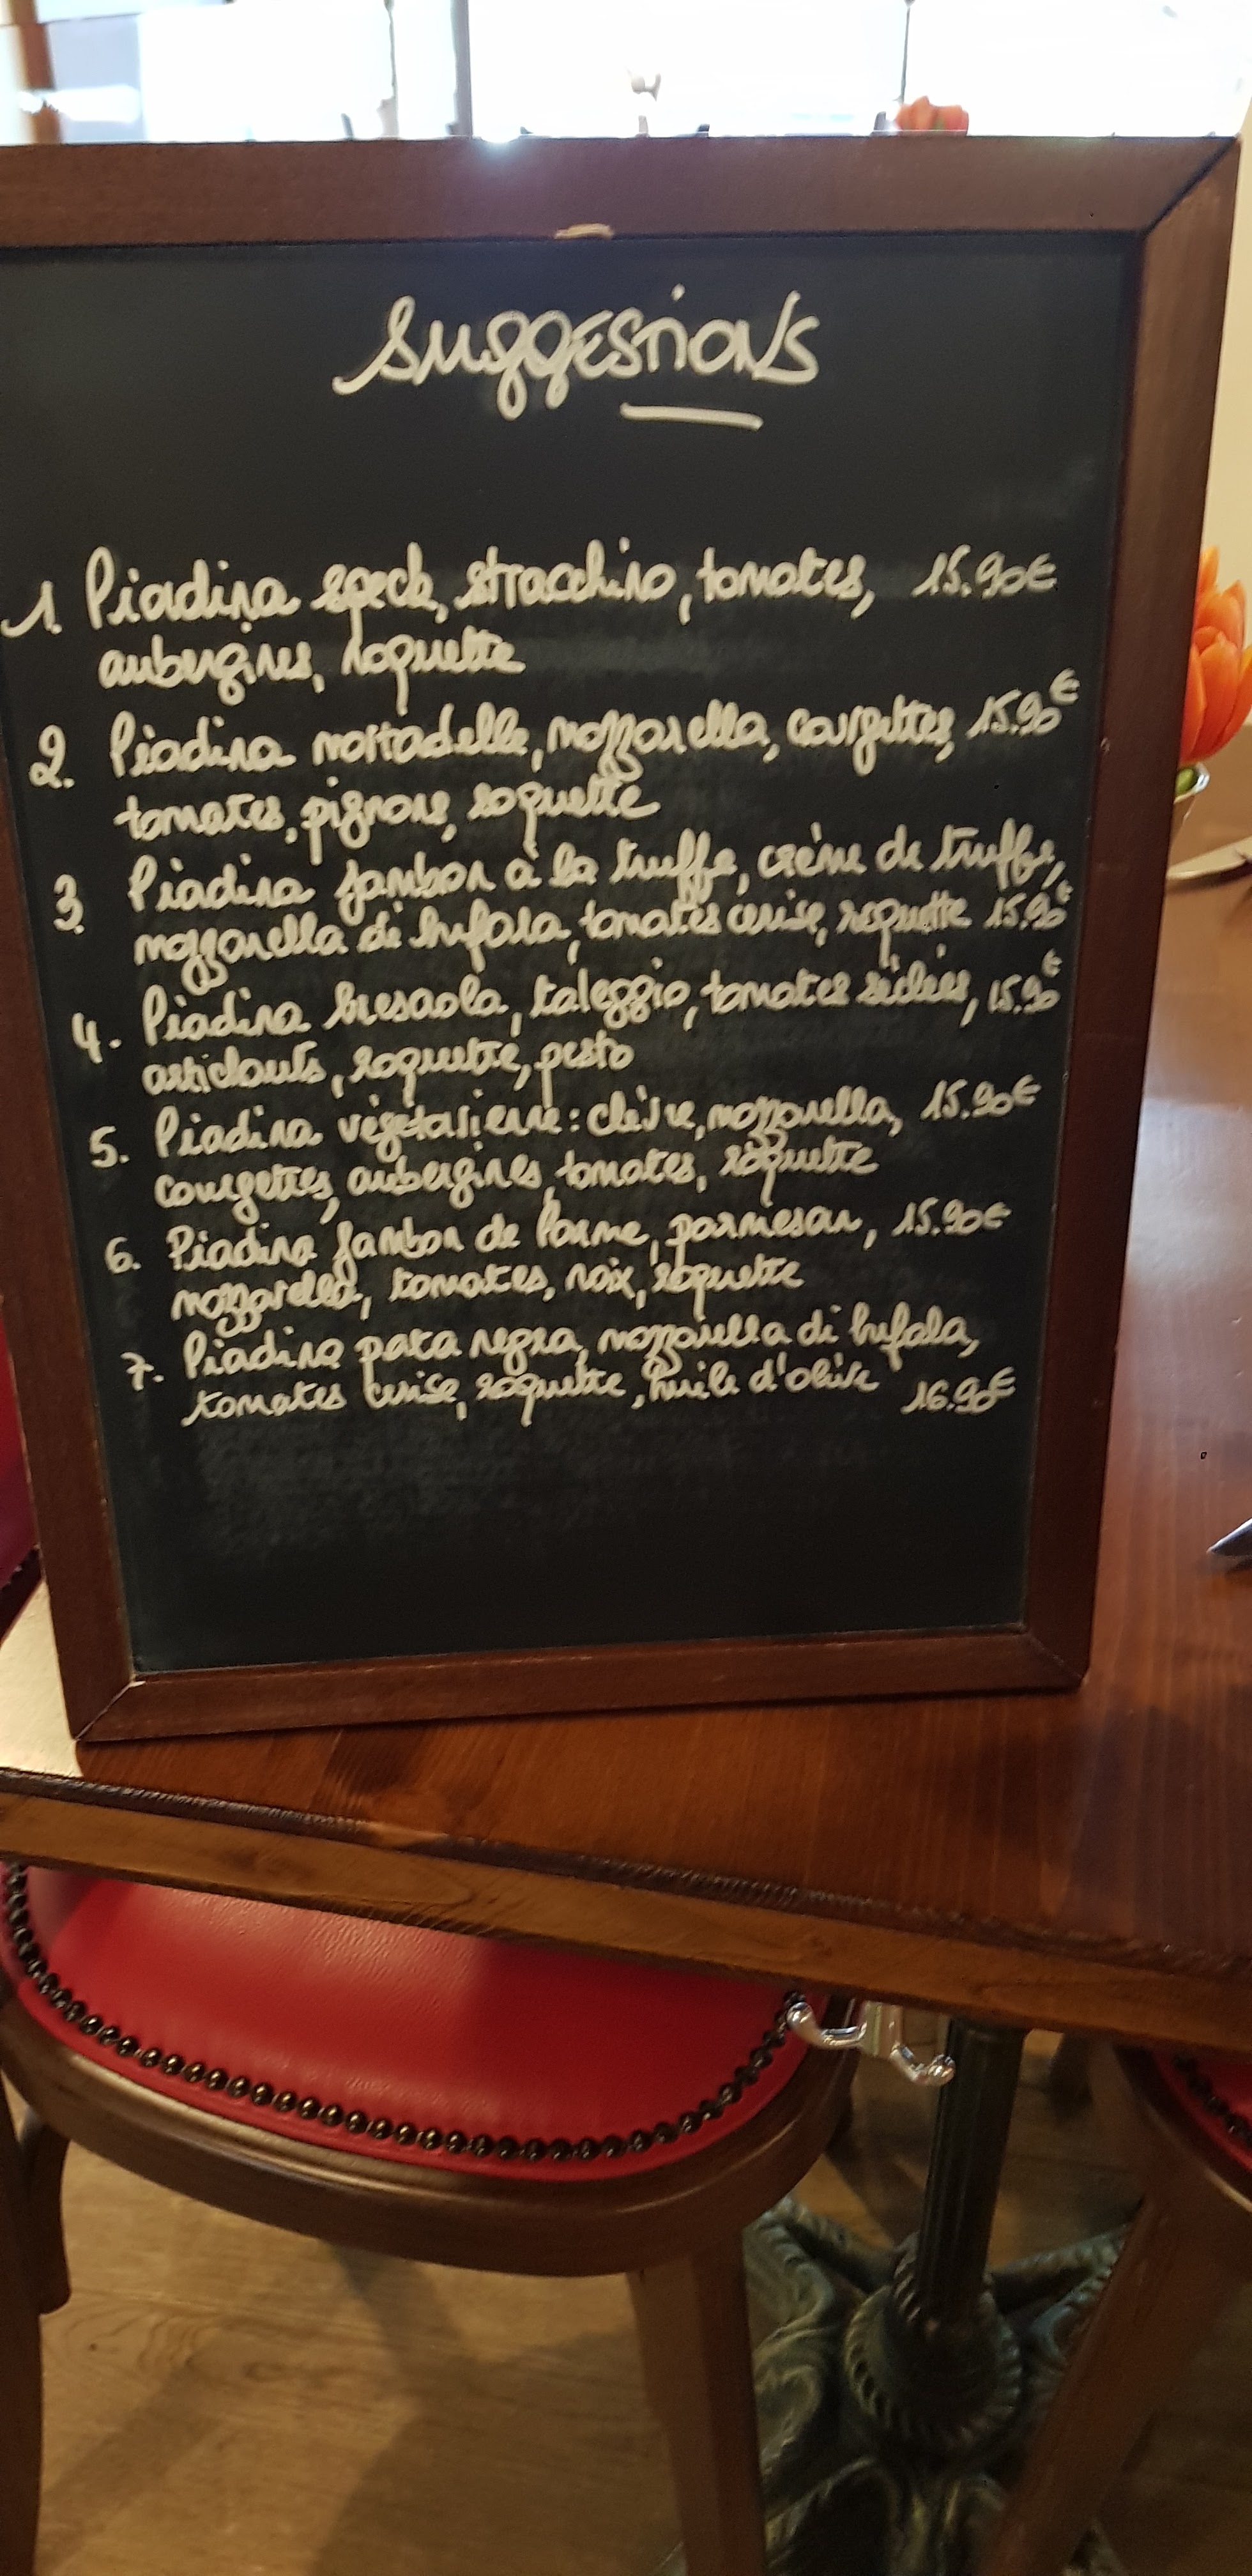 suggestions
1. Piadina speck, stracchino, tomates, 15.90€
aubergines, roquette
2. Piadina mortadelle, mozzarella, courgettes, 15.90€
tomates, pignons, roquette
3. Piadina jambon à la truffe, crème de truffe,
mozzarella di bufala, tomates cerise, roquette 15.90€
4. Piadina bresaola, taleggio, tomates séchées, 15.90€
artichauts, roquette, pesto
5. Piadina végétarienne: chèvre, mozzarella, 15.90€
courgettes, aubergines, tomates, roquette
6. Piadina jambon de Parme, parmesan, 15.90€
mozzarella, tomates, noix, roquette
7. Piadina pata negra, mozzarella di bufala,
tomates cerise, roquette, huile d'olive 16.90€